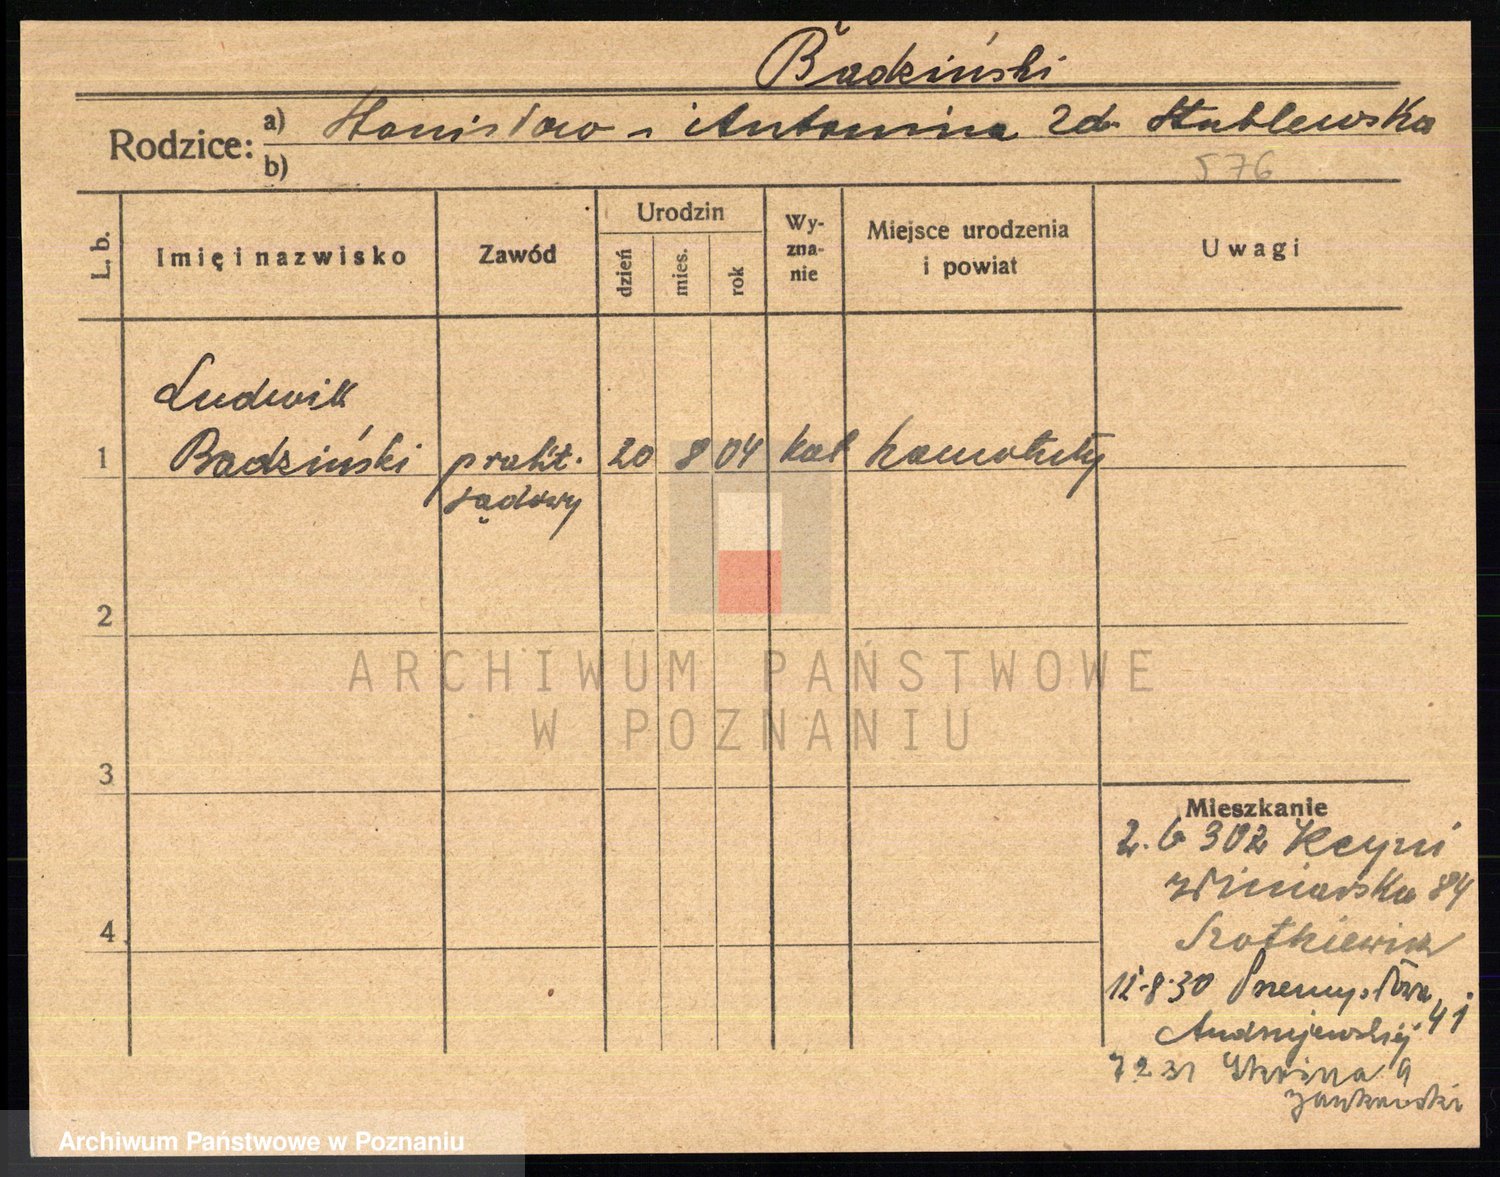 Badziński
Rodzice: a) Stanisław i Antonina zd. Stublewska
b)
576
L. b.
Imię i nazwisko
Zawód
Urodzin
dzień
mies.
rok
Wy-
zna-
nie
Miejsce urodzenia
i powiat
Uwagi
Ludwik
1 Badziński prakt. 20 8 04 kat
sądowy
2
ARCHIWUM PAŃSTWOWE
W POZNANIU
3
Mieszkanie
2. 6 30 z Kcyni
Winiarska 84
4
12.8.30 Przemysłowa 41
Andrzejewskiej
7 2 31 9
Jankowski
Archiwum Państwowe w Poznaniu